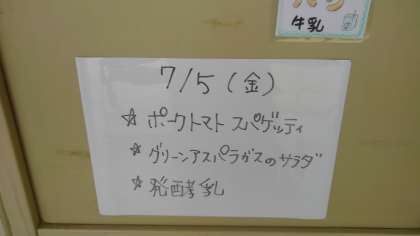 牛乳
7/5(金)
☆ポークトマトスパゲッティ
☆グリーンアスパラガスのサラダ
☆発酵乳